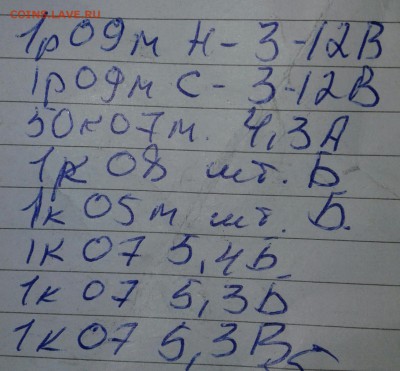 COINS.LAVE.RU
1р09м Н-3-12В
1р09м С-3-12В
50к07м. 4,3А
1к 08 шт. Б
1к 05м шт. Б.
1к 07 5,4Б
1к 07 5,3Б
1к 07 5,3В